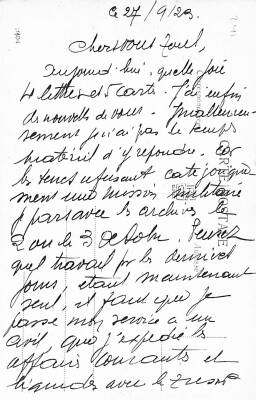 Le 27/9/23.
Chers vous tous,
Aujourd'hui, quelle joie
4 lettres et 5 carts. J'ai enfin
des nouvelles de vous. Malheureu-
sement je n'ai pas le temps
matériel d'y répondre. Car
les turcs refusent catégorique-
ment une mission militaire
je pars avec les archives le
2 ou le 3 Octobre. Pensez
quel travail pr les derniers
jours, étant maintenant
seul, il faut que je
passe mon service à un
civil, que j'expédie les
affaires courantes et
liquides avec le